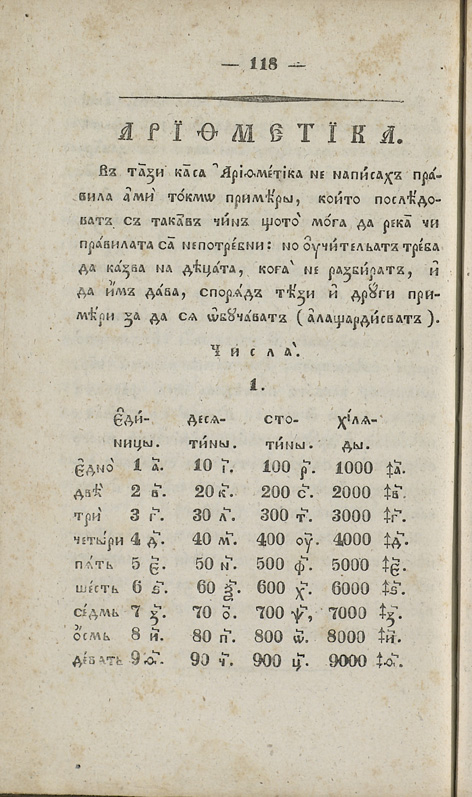 — 118 —
АРІѲМЕТІКА.
Въ та́зи ка́са Аріѳме́тіка не напи́сахъ пра́-
вила а́ми то́кмѡ приме́ры, кои́то послѣ́до-
ватъ съ така́въ чи́нъ щото̀ мо́га да река̀ чи
пра́вилата са̀ непотре́бни: но ᲂу҆чи́тельатъ тре́ба
да ка́зва на дѣца́та, кога̀ не разби́ратъ, и҆
да и҆́мъ да́ва, споря́дъ тѣ́зи и҆ дрꙋ́ги при-
мѣ́ри за да ся ѡ҆бꙋча́ватъ (а҆лащарди́сватъ).
Числа̀.
1.
є҆ди- деся- сто- хі́ля-
ницы. ти́ны. ти́ны. ды.
є҆дно̀ 1 а҃. 10 і҃. 100 р҃. 1000 ҂а҃.
двѣ̀ 2 в҃. 20 к҃. 200 с҃. 2000 ҂в҃.
трѝ 3 г҃. 30 л҃. 300 т҃. 3000 ҂г҃.
четы́ри 4 д҃. 40 м҃. 400 ᲂу҃. 4000 ҂д҃.
пя́ть 5 є҃. 50 н҃. 500 ф҃. 5000 ҂є҃.
ше́сть 6 ѕ҃. 60 ѯ҃. 600 х҃. 6000 ҂ѕ҃.
се́дмь 7 з҃. 70 о҃. 700 ѱ҃, 7000 ҂з҃.
о҆́смь 8 и҃. 80 п҃. 800 ѿ҃. 8000 ҂и҃.
де́вать 9 ѳ҃. 90 ч҃. 900 ц҃. 9000 ҂ѳ҃.